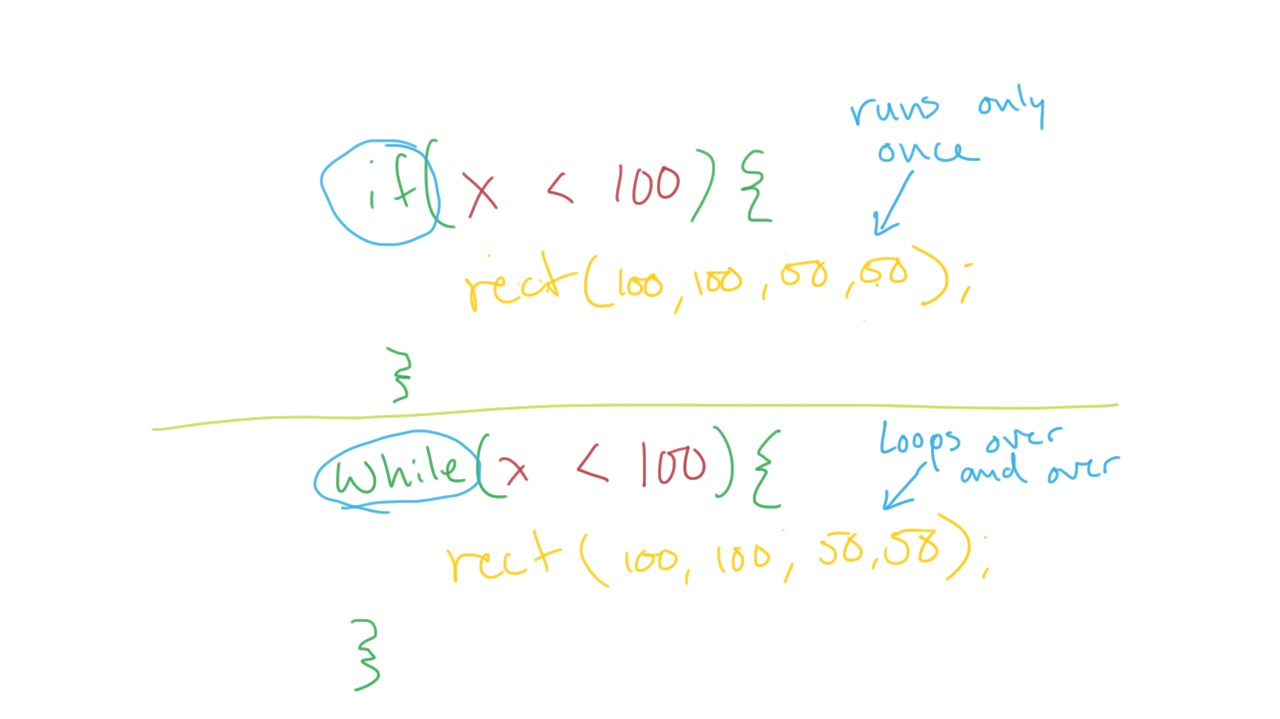 runs only
once
if(x < 100){
rect(100,100,50,50);
}
Loops over
and over
while(x < 100){
rect(100,100,50,50);
}